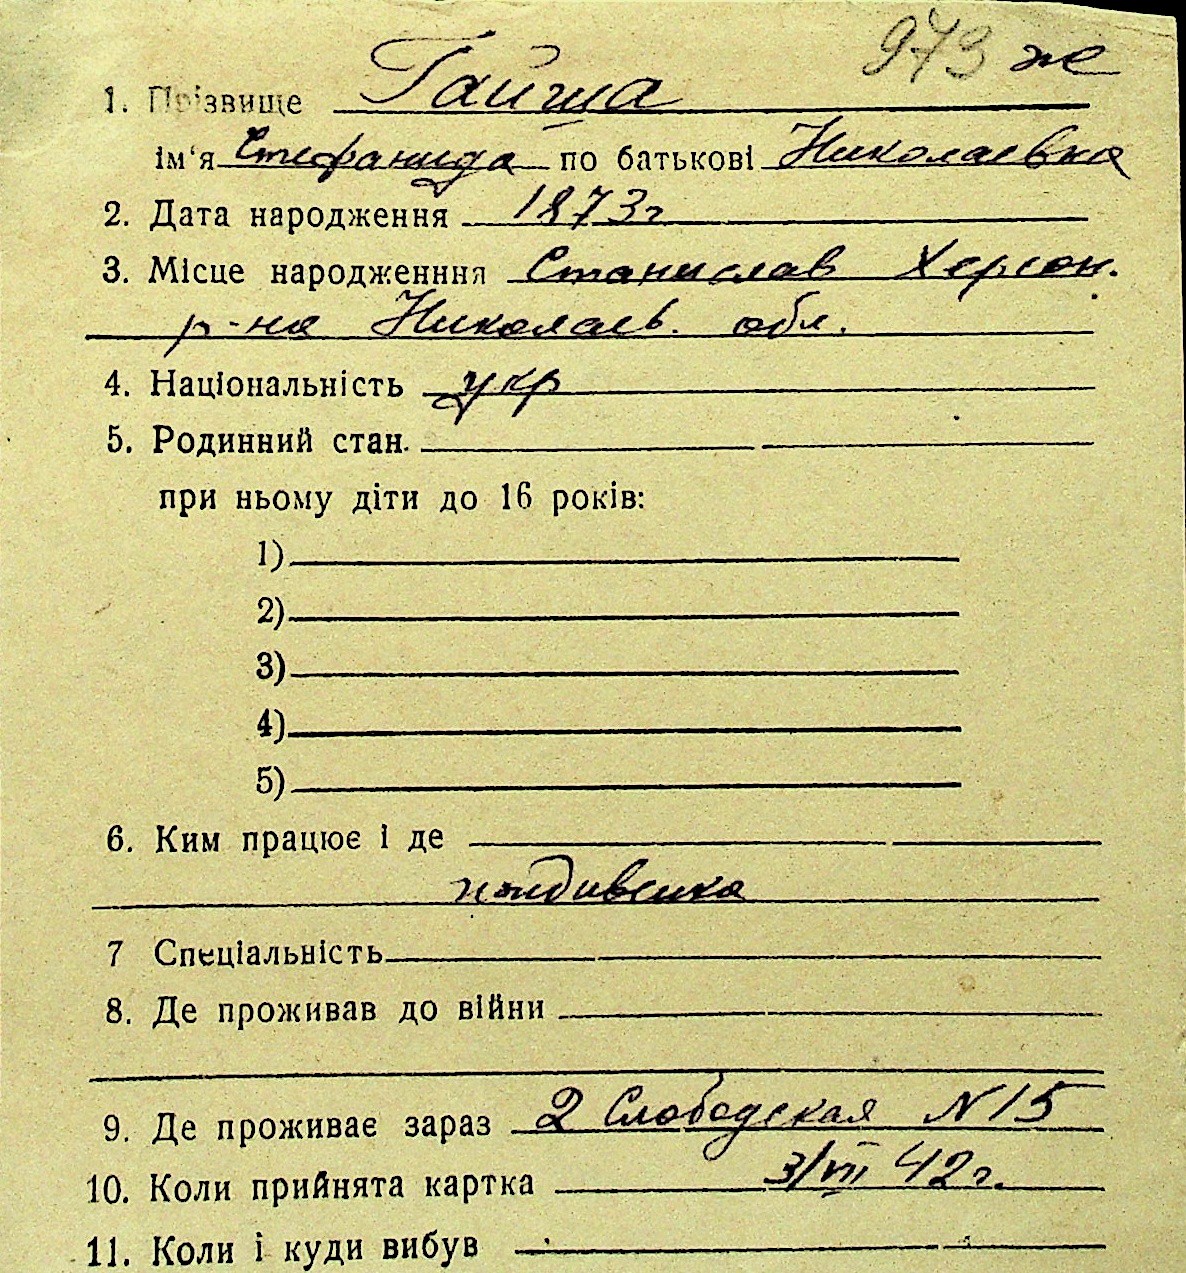 973 же
1. Прізвище Гайша
ім'я Стефанида по батькові Николаевна
2. Дата народження 1873г
3. Місце народженння Станислав Херсон.
р-на Николаев. обл.
4. Національність укр
5. Родинний стан.
при ньому діти до 16 років:
1)
2)
3)
4)
5)
6. Ким працює і де
иждивенка
7 Спеціальність
8. Де проживав до війни
9. Де проживає зараз 2 Слободская N 15
10. Коли прийнята картка 3/VII 42г.
11. Коли і куди вибув